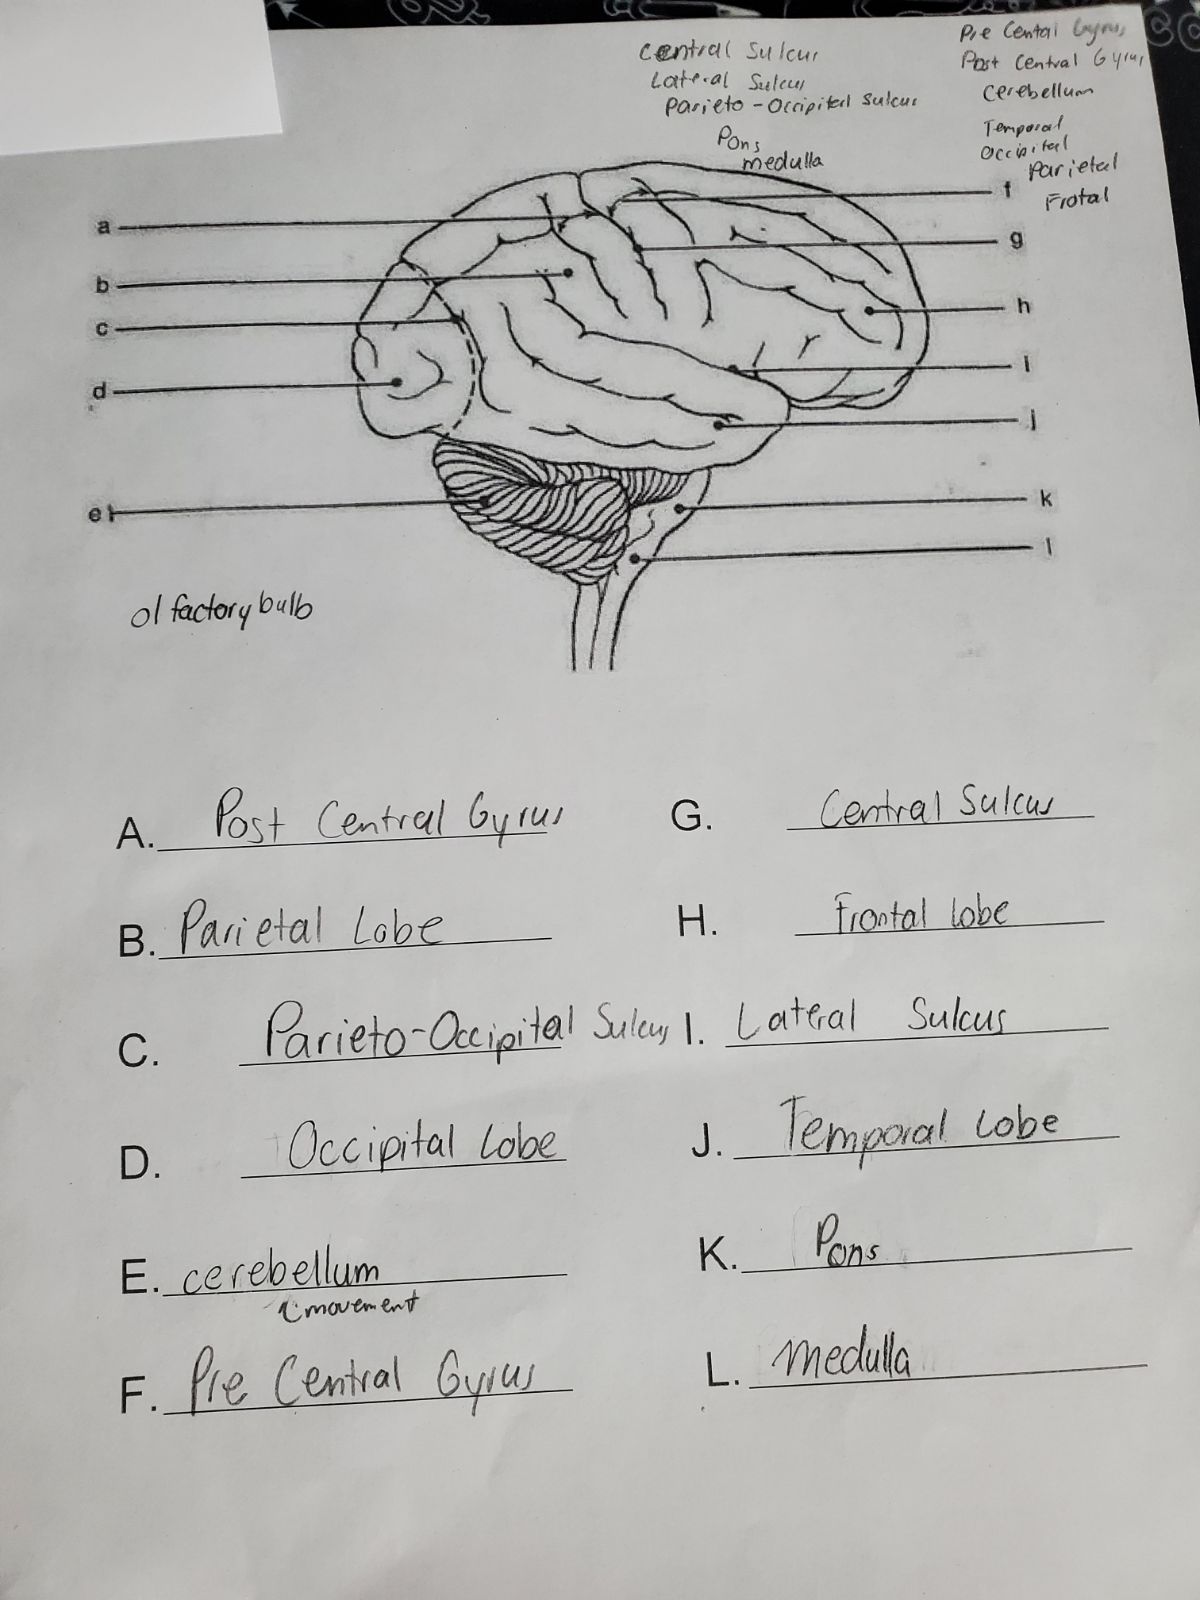 Central Sulcus
Lateral Sulcus
Parieto-Occipital Sulcus
Pons
medulla
Pre Cental Gyrus
Post Central Gyrus
Cerebellum
Temporal
Occipital
Parietal
Frotal
a
b
c
d
e
f
g
h
i
j
k
l
olfactory bulb
A. Post Central Gyrus
B. Parietal Lobe
C. Parieto-Occipital Sulcus
D. Occipital Lobe
E. cerebellum
movement
F. Pre Central Gyrus
G. Central Sulcus
H. Frontal lobe
I. Lateral Sulcus
J. Temporal Lobe
K. Pons
L. medulla